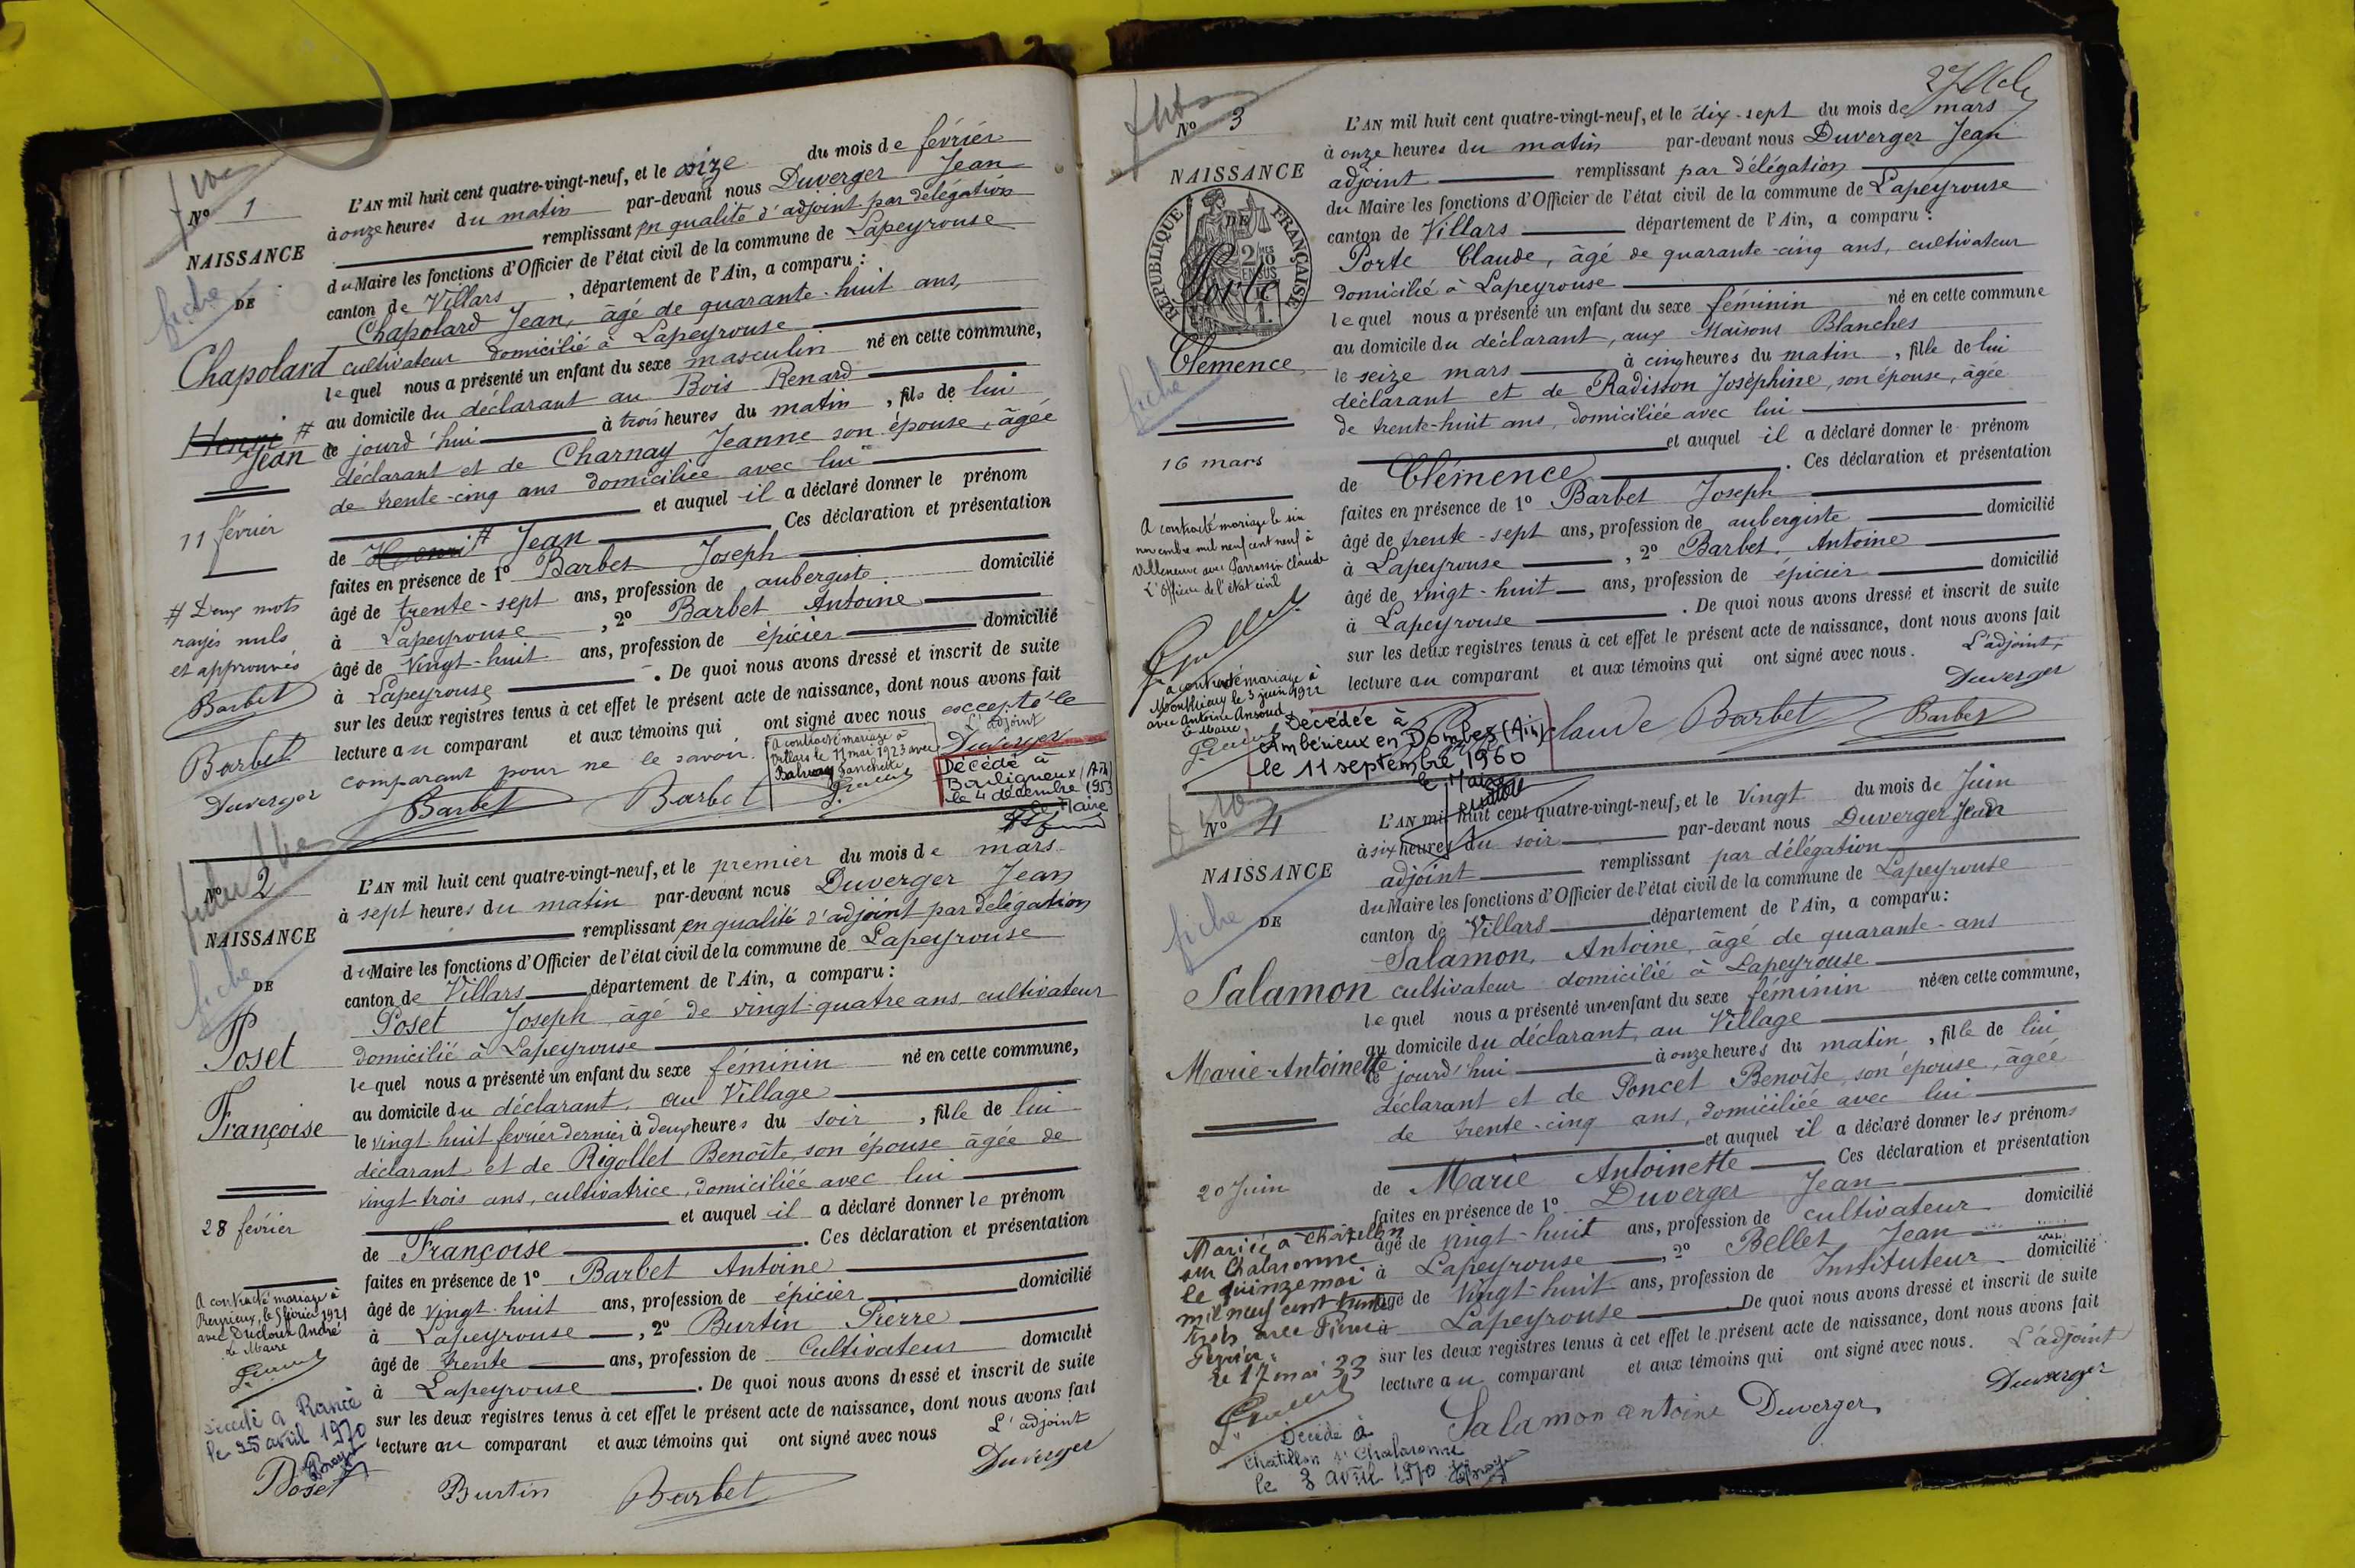 Nº 1
NAISSANCE
DE
Chapolard
Henri #
Jean
11 février
# Deux mots
rayés nuls
et approuvés
Barbet
Barbet
Duverger
L'AN mil huit cent quatre-vingt-neuf, et le onze du mois de février
à onze heures du matin par-devant nous Duverger Jean
remplissant en qualité d'adjoint par délégation
du Maire les fonctions d'Officier de l'état civil de la commune de Lapeyrouse
canton de Villars, département de l'Ain, a comparu :
Chapolard Jean, âgé de quarante-huit ans,
cultivateur domicilié à Lapeyrouse
lequel nous a présenté un enfant du sexe masculin né en cette commune,
au domicile du déclarant au Bois Renard
ce jourd'hui à trois heures du matin, fils de lui
déclarant et de Charnay Jeanne son épouse, âgée
de trente-cinq ans domiciliée avec lui
et auquel il a déclaré donner le prénom
de Henri # Jean Ces déclaration et présentation
faites en présence de 1º Barbet Joseph
âgé de trente-sept ans, profession de aubergiste domicilié
à Lapeyrouse, 2º Barbet Antoine
âgé de vingt-huit ans, profession de épicier domicilié
à Lapeyrouse. De quoi nous avons dressé et inscrit de suite
sur les deux registres tenus à cet effet le présent acte de naissance, dont nous avons fait
lecture au comparant et aux témoins qui ont signé avec nous excepté le
comparant pour ne le savoir.
L'adjoint
Duverger
Barbet Barbet
A contracté mariage à
Villars le 17 mai 1923 avec
Fanchette
Décédé à
Bouligneux (Ain)
le 4 décembre 1953
Le Maire
Nº 2
NAISSANCE
fiche
DE
Poset
Françoise
28 février
A contracté mariage à
Reyrieux, le 5 février 1921
avec Ducloux André
Le Maire
Décédé à Rancé
le 25 avril 1970
L'AN mil huit cent quatre-vingt-neuf, et le premier du mois de mars
à sept heures du matin par-devant nous Duverger Jean
remplissant en qualité d'adjoint par délégation
du Maire les fonctions d'Officier de l'état civil de la commune de Lapeyrouse
canton de Villars département de l'Ain, a comparu :
Poset Joseph âgé de vingt-quatre ans cultivateur
domicilié à Lapeyrouse
lequel nous a présenté un enfant du sexe féminin né en cette commune,
au domicile du déclarant, au Village
le vingt-huit février dernier à deux heures du soir, fille de lui
déclarant et de Rigollet Benoîte, son épouse âgée de
vingt trois ans, cultivatrice, domiciliée avec lui
et auquel il a déclaré donner le prénom
de Françoise. Ces déclaration et présentation
faites en présence de 1º Barbet Antoine
âgé de vingt-huit ans, profession de épicier domicilié
à Lapeyrouse, 2º Burtin Pierre
âgé de trente ans, profession de Cultivateur domicilié
à Lapeyrouse. De quoi nous avons dressé et inscrit de suite
sur les deux registres tenus à cet effet le présent acte de naissance, dont nous avons fait
lecture au comparant et aux témoins qui ont signé avec nous
L'adjoint
Duverger
Poset Burtin Barbet
Nº 3
NAISSANCE
RÉPUBLIQUE FRANÇAISE
DE
Porte
Clémence
fiche
16 mars
A contracté mariage le six
novembre mil neuf cent neuf à
Villeneuve avec Parrassin Claude
L'Officier de l'état civil
a contracté mariage à
Monthieux le 3 juin 1922
avec Antoine Ansoud
Le Maire
L'AN mil huit cent quatre-vingt-neuf, et le dix-sept du mois de mars
à onze heures du matin par-devant nous Duverger Jean
adjoint remplissant par délégation
du Maire les fonctions d'Officier de l'état civil de la commune de Lapeyrouse
canton de Villars département de l'Ain, a comparu :
Porte Claude, âgé de quarante-cinq ans, cultivateur
domicilié à Lapeyrouse
lequel nous a présenté un enfant du sexe féminin né en cette commune
au domicile du déclarant, aux Maisons Blanches
le seize mars à cinq heures du matin, fille de lui
déclarant et de Radisson Joséphine, son épouse, âgée
de trente-huit ans, domiciliée avec lui
et auquel il a déclaré donner le prénom
de Clémence. Ces déclaration et présentation
faites en présence de 1º Barbet Joseph
âgé de trente-sept ans, profession de aubergiste domicilié
à Lapeyrouse, 2º Barbet Antoine
âgé de vingt-huit ans, profession de épicier domicilié
à Lapeyrouse. De quoi nous avons dressé et inscrit de suite
sur les deux registres tenus à cet effet le présent acte de naissance, dont nous avons fait
lecture au comparant et aux témoins qui ont signé avec nous.
L'adjoint,
Duverger
claude Barbet Barbet
Décédée à
Ambérieux en Dombes (Ain)
le 11 septembre 1960
Le Maire
Nº 4
NAISSANCE
fiche
DE
Salamon
Marie-Antoinette
20 Juin
Mariée à Châtillon
sur Chalaronne
le quinze mai
mil neuf cent trente
trois avec Pierre
Perrier.
le 17 mai 33
Décédé à
Chatillon s/ Chalaronne
le 3 avril 1970
L'AN mil huit cent quatre-vingt-neuf, et le Vingt du mois de Juin
à six heures du soir par-devant nous Duverger Jean
adjoint remplissant par délégation
du Maire les fonctions d'Officier de l'état civil de la commune de Lapeyrouse
canton de Villars département de l'Ain, a comparu :
Salamon Antoine, âgé de quarante-ans
cultivateur domicilié à Lapeyrouse
lequel nous a présenté un enfant du sexe féminin née en cette commune,
au domicile du déclarant, au Village
ce jourd'hui à onze heures du matin, fille de lui
déclarant et de Poncet Benoîte, son épouse, âgée
de trente-cinq ans, domiciliée avec lui
et auquel il a déclaré donner les prénoms
de Marie Antoinette Ces déclaration et présentation
faites en présence de 1º Duverger Jean
âgé de vingt-huit ans, profession de cultivateur domicilié
à Lapeyrouse, 2º Bellet Jean
âgé de Vingt-huit ans, profession de Instituteur domicilié
à Lapeyrouse De quoi nous avons dressé et inscrit de suite
sur les deux registres tenus à cet effet le présent acte de naissance, dont nous avons fait
lecture au comparant et aux témoins qui ont signé avec nous.
L'adjoint
Duverger
Salamon antoine Duverger